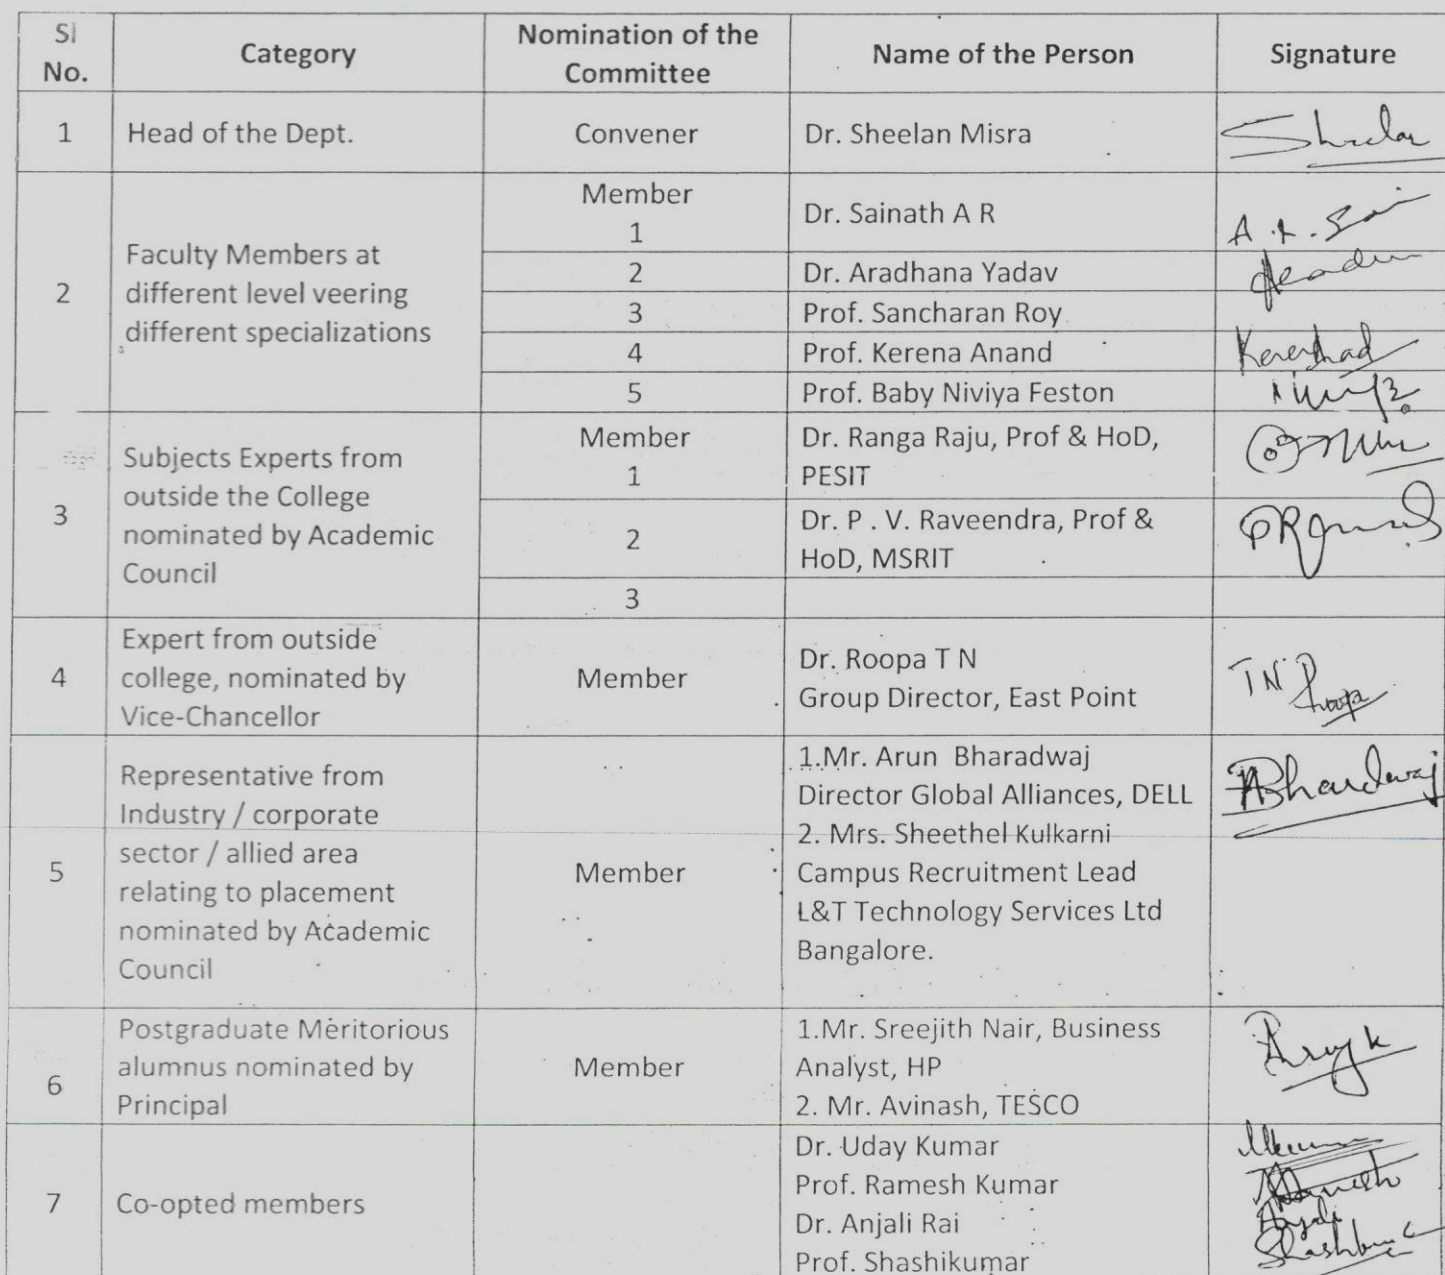 Sl No. | Category | Nomination of the Committee | Name of the Person | Signature
1 | Head of the Dept. | Convener | Dr. Sheelan Misra
2 | Faculty Members at different level veering different specializations
Member 1 | Dr. Sainath A R | A. R. Sai
2 | Dr. Aradhana Yadav
3 | Prof. Sancharan Roy
4 | Prof. Kerena Anand
5 | Prof. Baby Niviya Feston
3 | Subjects Experts from outside the College nominated by Academic Council
Member 1 | Dr. Ranga Raju, Prof & HoD, PESIT
2 | Dr. P . V. Raveendra, Prof & HoD, MSRIT
3
4 | Expert from outside college, nominated by Vice-Chancellor | Member | Dr. Roopa T N
Group Director, East Point | T N Roopa
5 | Representative from Industry / corporate sector / allied area relating to placement nominated by Academic Council | Member
1.Mr. Arun Bharadwaj
Director Global Alliances, DELL | ABhardwaj
2. Mrs. Sheethel Kulkarni
Campus Recruitment Lead
L&T Technology Services Ltd
Bangalore.
6 | Postgraduate Meritorious alumnus nominated by Principal | Member
1.Mr. Sreejith Nair, Business Analyst, HP
2. Mr. Avinash, TESCO
7 | Co-opted members
Dr. Uday Kumar
Prof. Ramesh Kumar
Dr. Anjali Rai | Anjali
Prof. Shashikumar